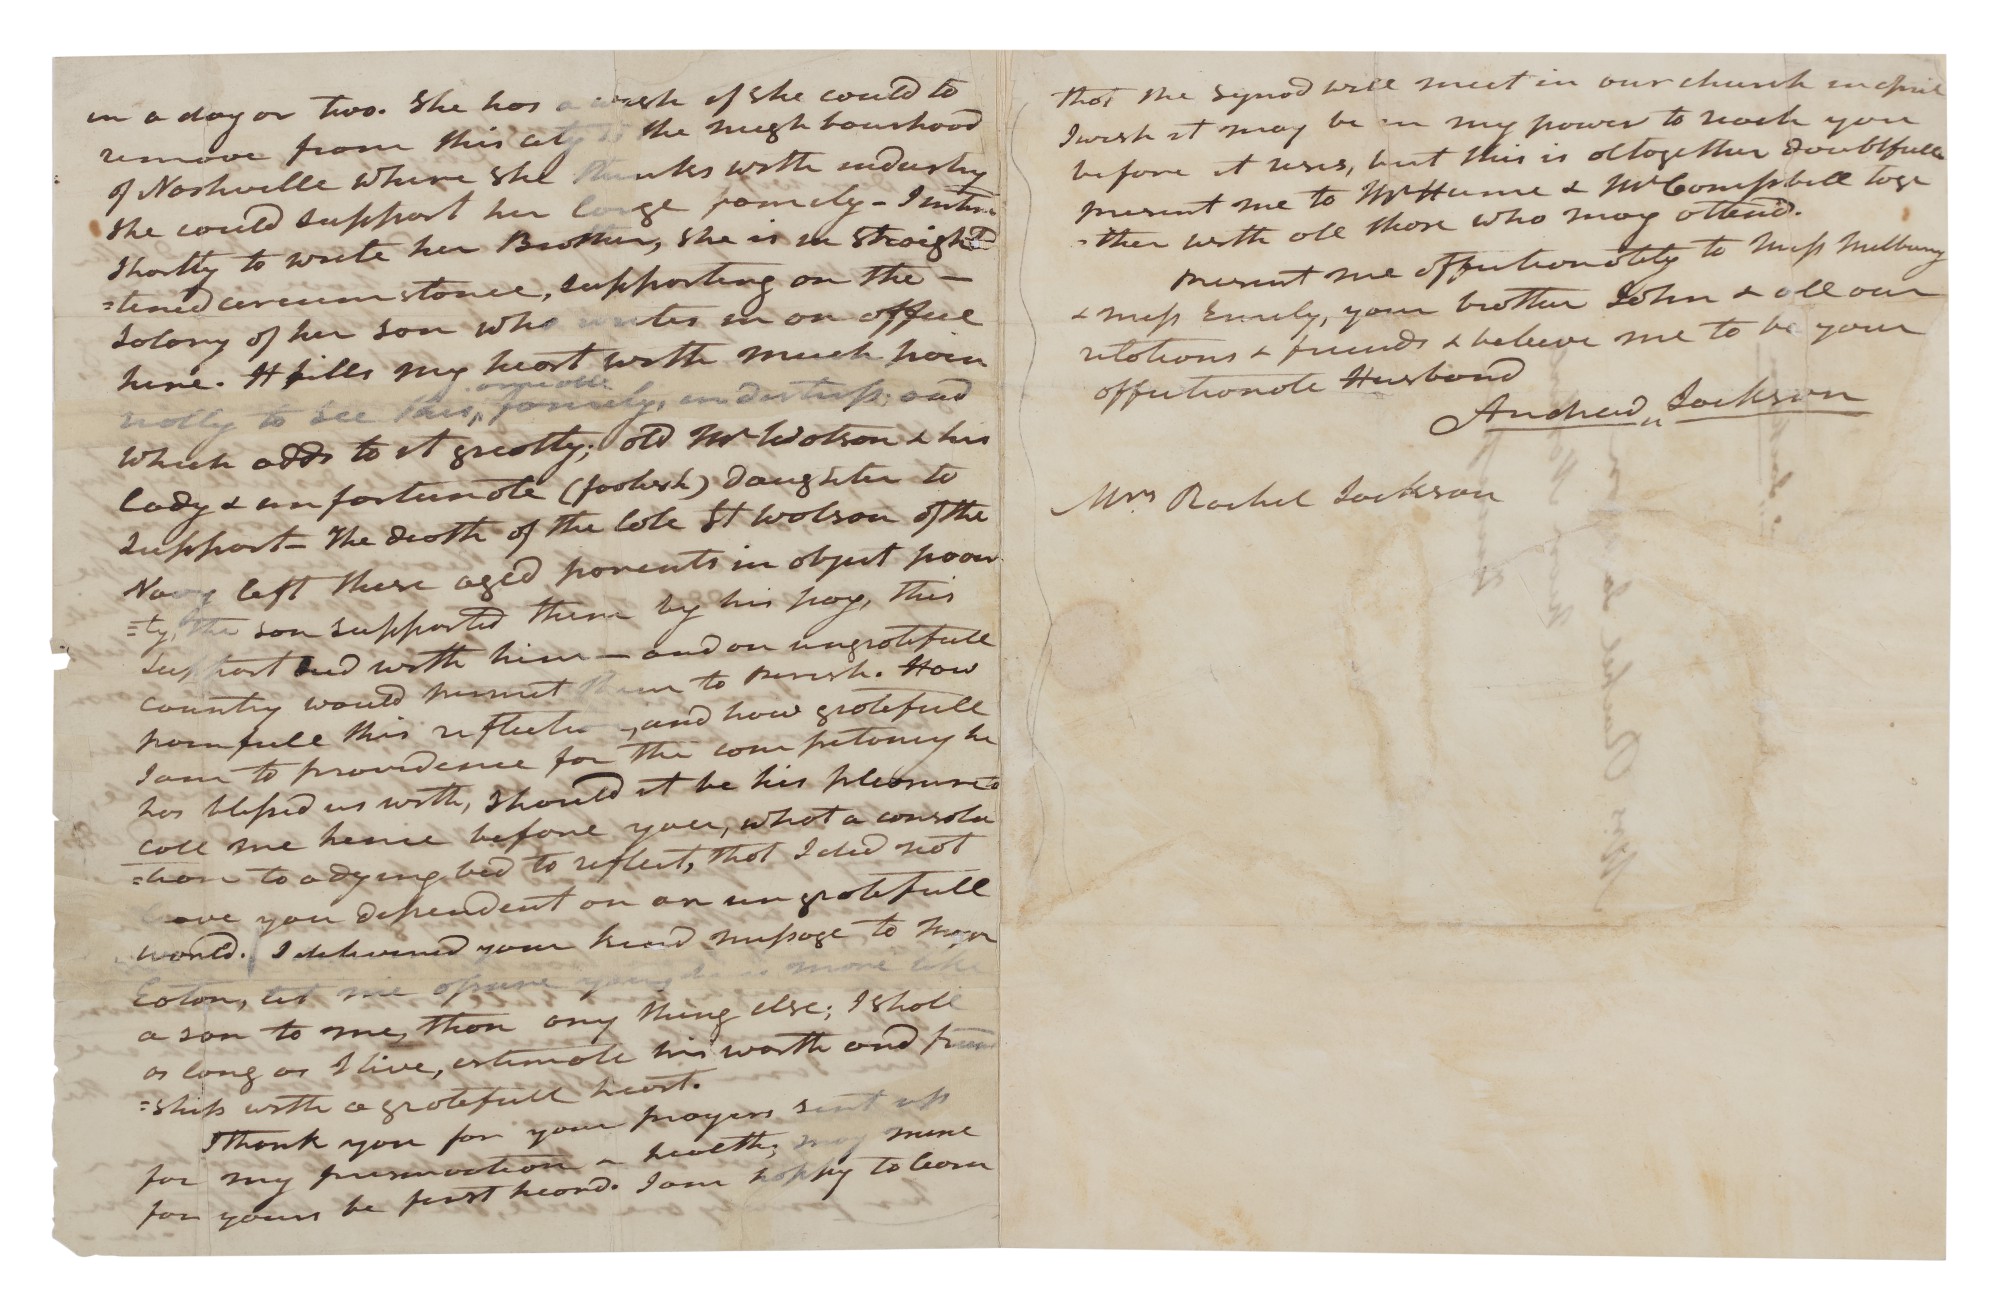 in a day or two. She has a wish if she could to
remove from this city to the neighbourhood
of Nashville where she thinks with industry
she could support her large family – I intend
shortly to write her Brother, she is in straight
=tened circumstance, supporting on the –
Salary of her son who writes in an office
here. It fills my heart with much pain
really to see this, amiable family, in distress, and
which adds to it greatly; old Mr Watson & his
Lady & unfortunate (foolish) daughter to
support – The death of the late Lt Watson of the
Navy left these aged parents in object pover
=ty, the son supported them by his pay, this
support died with him – and an ungratefull
country would permit them to perish. How
painfull this reflection, and how gratefull
I am to providence for the competency he
has blessed us with, should it be his pleasure to
call me hence before you, what a consola
=tion to a dying bed to reflect, that I did not
leave you dependent on an ungratefull
world. I delivered your kind message to Major
Eaton, let me assure you he is more like
a son to me, than any thing else; I shall
as long as I live, estimate his worth and friend
=ship with a gratefull heart.
I thank you for your prayers sent up
for my preservation & health, may mine
for yours be first heard. I am happy to learn
that the Synod will meet in our church in april
I wish it may be in my power to reach you
before it rises, but this is altogether doubtfull
present me to Mr Hume & Mr Campbell toge
=ther with all those who may attend.
present me affectionately to Miss
& Miss Emily, your brother John & all our
relations & friends & believe me to be your
affectionate Husband
Andrew Jackson
Mrs Rachel Jackson